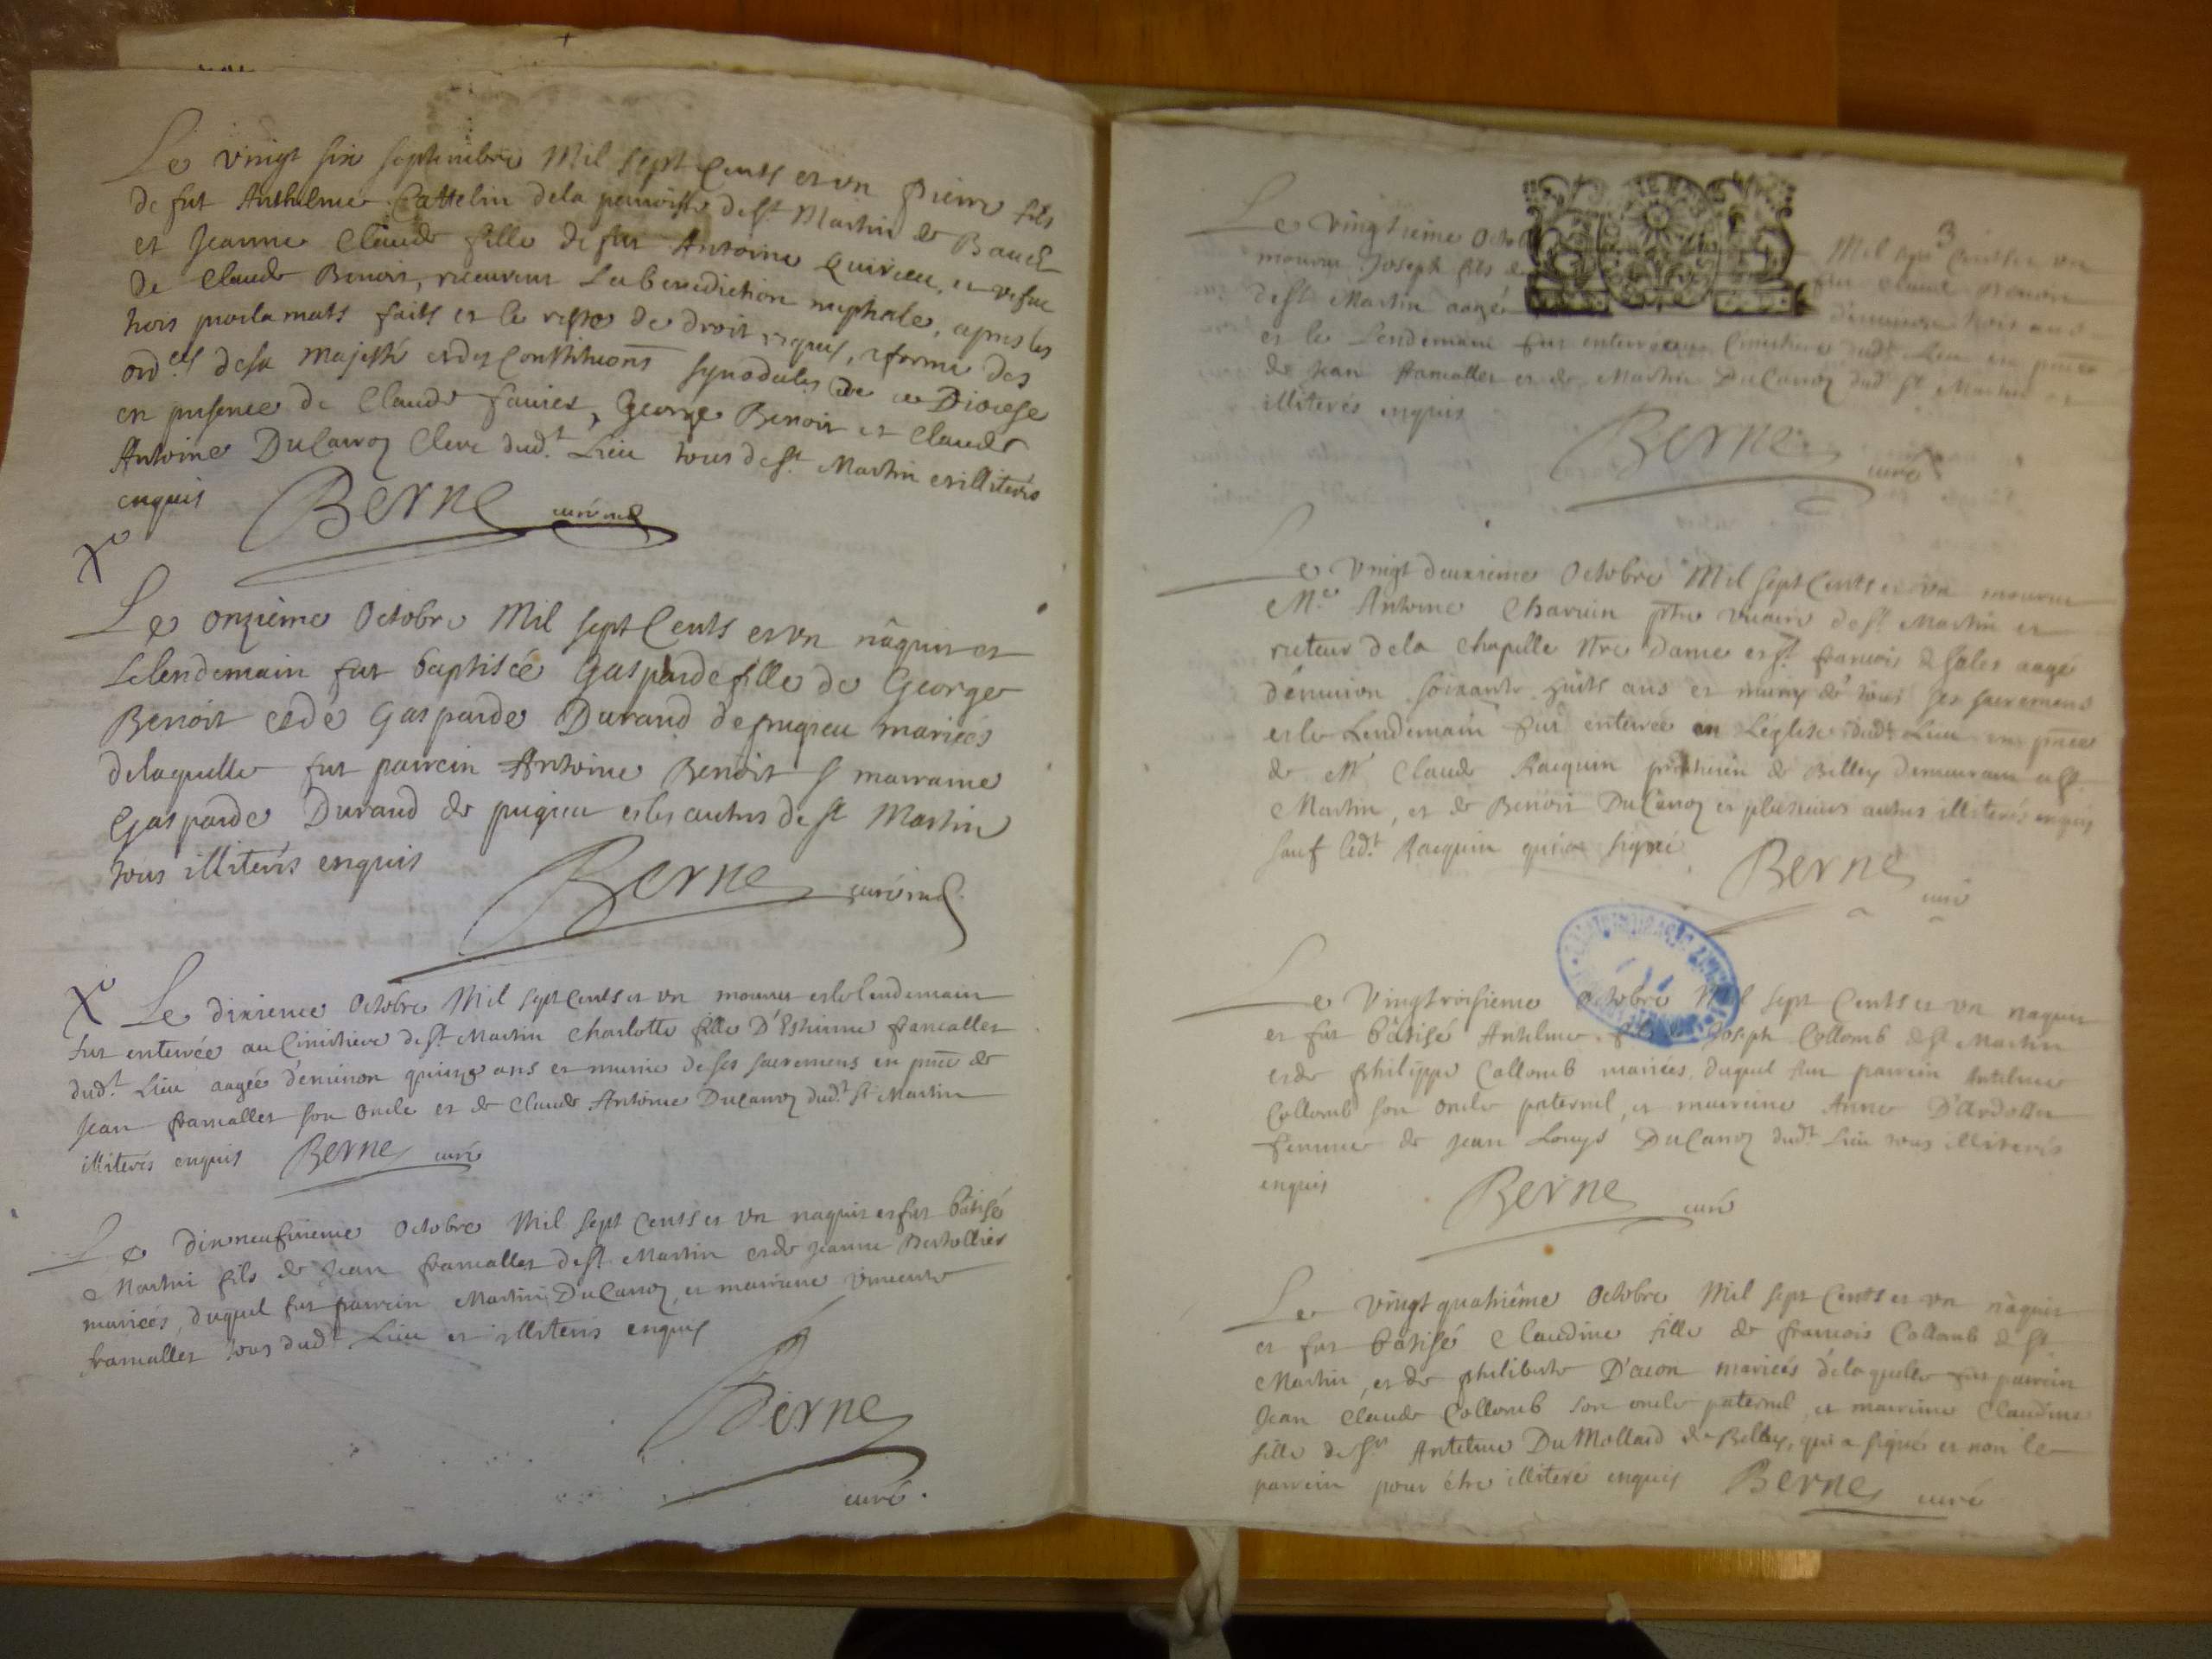 Le vingt six septembre Mil sept Cents et un Pierre fils
de fut Anthelme Cattelin dela parroisse de St Martin de Bavel
et Jeanne Claude fille de fut Antoine Quirieu, et vefue
de Claude Benoit, receurent La benediction nuptiale, apres les
trois proclamats faits et le reste de droit requis, a forme des
ordces de sa Majesté et des Constitutions synodales de ce Diocese
en presence de Claude favier, George Benoit et Claude
Antoine DuCarroz Clerc dudt Lieu tous de St Martin et illiterés
enquis
Berne curé
Xe
Le onzieme Octobre Mil sept Cents et un nâquit et
Lelendemain fut baptisée Gasparde fille de George
Benoit et de Gasparde Durand de pugieu mariés
delaquelle fut parrein Antoine Benoit marraine
Gasparde Durand de pugieu et les autres de St Martin
tous illiterés enquis
Berne curé
Xe Le dixieme Octobre Mil sept Cents et un mourut et le lendemain
fut enterrée au Cimetiere de St Martin Charlotte fille D'Estienne francallet
dudt Lieu aagée d'environ quinze ans et munie de ses sacremens en pnce de
Jean francallet son Oncle et de Claude Antoine DuCarroz dudt St Martin
illiterés enquis Berne curé
Le dixneufvieme Octobre Mil sept Cents et un naquit et fut bâtisé
Martin fils de Jean francallet de St Martin et de Jeanne Berthollier
mariés, duquel fut parrein Martin DuCarroz, et marraine
francallet tous dudt Lieu et illiterés enquis
Berne
curé.
3
Le vingtieme Mil sept Cents et un
mourut Joseph fils de fut Claude Benoit
de St Martin aagé d'environ trois ans
et le Lendemain fut enterré Cimetiere dudt Lieu en pnce
de Jean francallet et de Martin DuCarroz dudt St Martin et
illiterés enquis
Berne curé
Le vingt deuxieme Octobre Mil sept Cents et un mourut
Mre Antoine Charvin ptre vicaire de St Martin et
recteur dela Chapelle Nre Dame et St francois de Sales aagé
d'environ soixante huits ans et muny de tous ses sacremens
et le Lendemain fut enterré en L'église dudt Lieu en pnce
de Mr Claude Racquin de Belley demeurant a St
Martin, et de Benoit DuCarroz et plusieurs autres illiterés enquis
sauf ledt Racquin qui a signé
Berne curé
Le Vingtroisieme Octobre Mil sept Cents et un naquit
et fut bâtisé Antelme fils de Joseph Collomb de St Martin
et de philippe Collomb mariés, duquel fut parrein Antelme
Collomb son oncle paternel, et marreine Anne
femme de Jean Louys DuCarroz dudt Lieu tous illiterés
enquis
Berne curé
Le vingt quatriême Octobre Mil sept Cents et un nâquit
et fut bâtisé Claudine fille de francois Collomb de St
Martin, et de philiberte mariés delaquelle fut parrein
Jean Claude Collomb son oncle paternel, et marreine Claudine
fille de Sr Antelme Du Mollard de Belley, qui a signé et non le
parrein pour étre illiteré enquis Berne curé